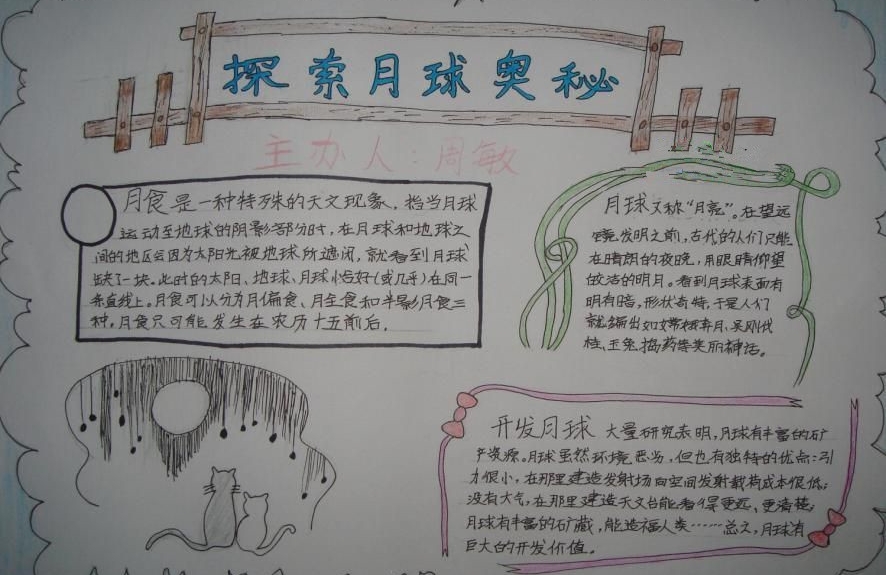 探索月球奥秘
主办人:周敏
月食是一种特殊的天文现象,指当月球
运动至地球的阴影部分时,在月球和地球之
间的地区会因为太阳光被地球所遮闭,就看到月球
缺了一块。此时的太阳、地球、月球恰好(或几乎)在同一
条直线上。月食可以分为月偏食、月全食和半影月食三
种,月食只可能发生在农历十五前后。
月球又称“月亮”。在望远
镜发明之前,古代的人们只能
在晴朗的夜晚,用眼睛仰望
皎洁的明月。看到月球表面有
明有暗,形状奇特,于是人们
就编出如嫦娥奔月、吴刚伐
桂、玉兔捣药等美丽神话。
开发月球 大量研究表明,月球有丰富的矿
产资源。月球虽然环境恶劣,但也有独特的优点:引
力很小,在那里建造发射场向空间发射载荷成本很低;
没有大气,在那里建造天文台能看得更远、更清楚;
月球有丰富的矿藏,能造福人类……总之,月球有
巨大的开发价值。